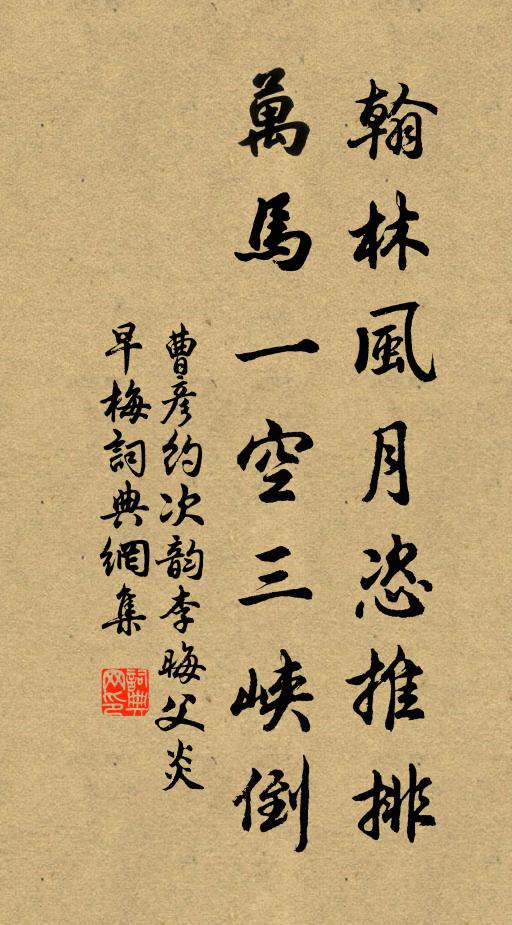 翰林風月恣推排
萬馬一空三峽倒
曹彦約次韵李晦父炎
早梅詞典網集
詞典网印